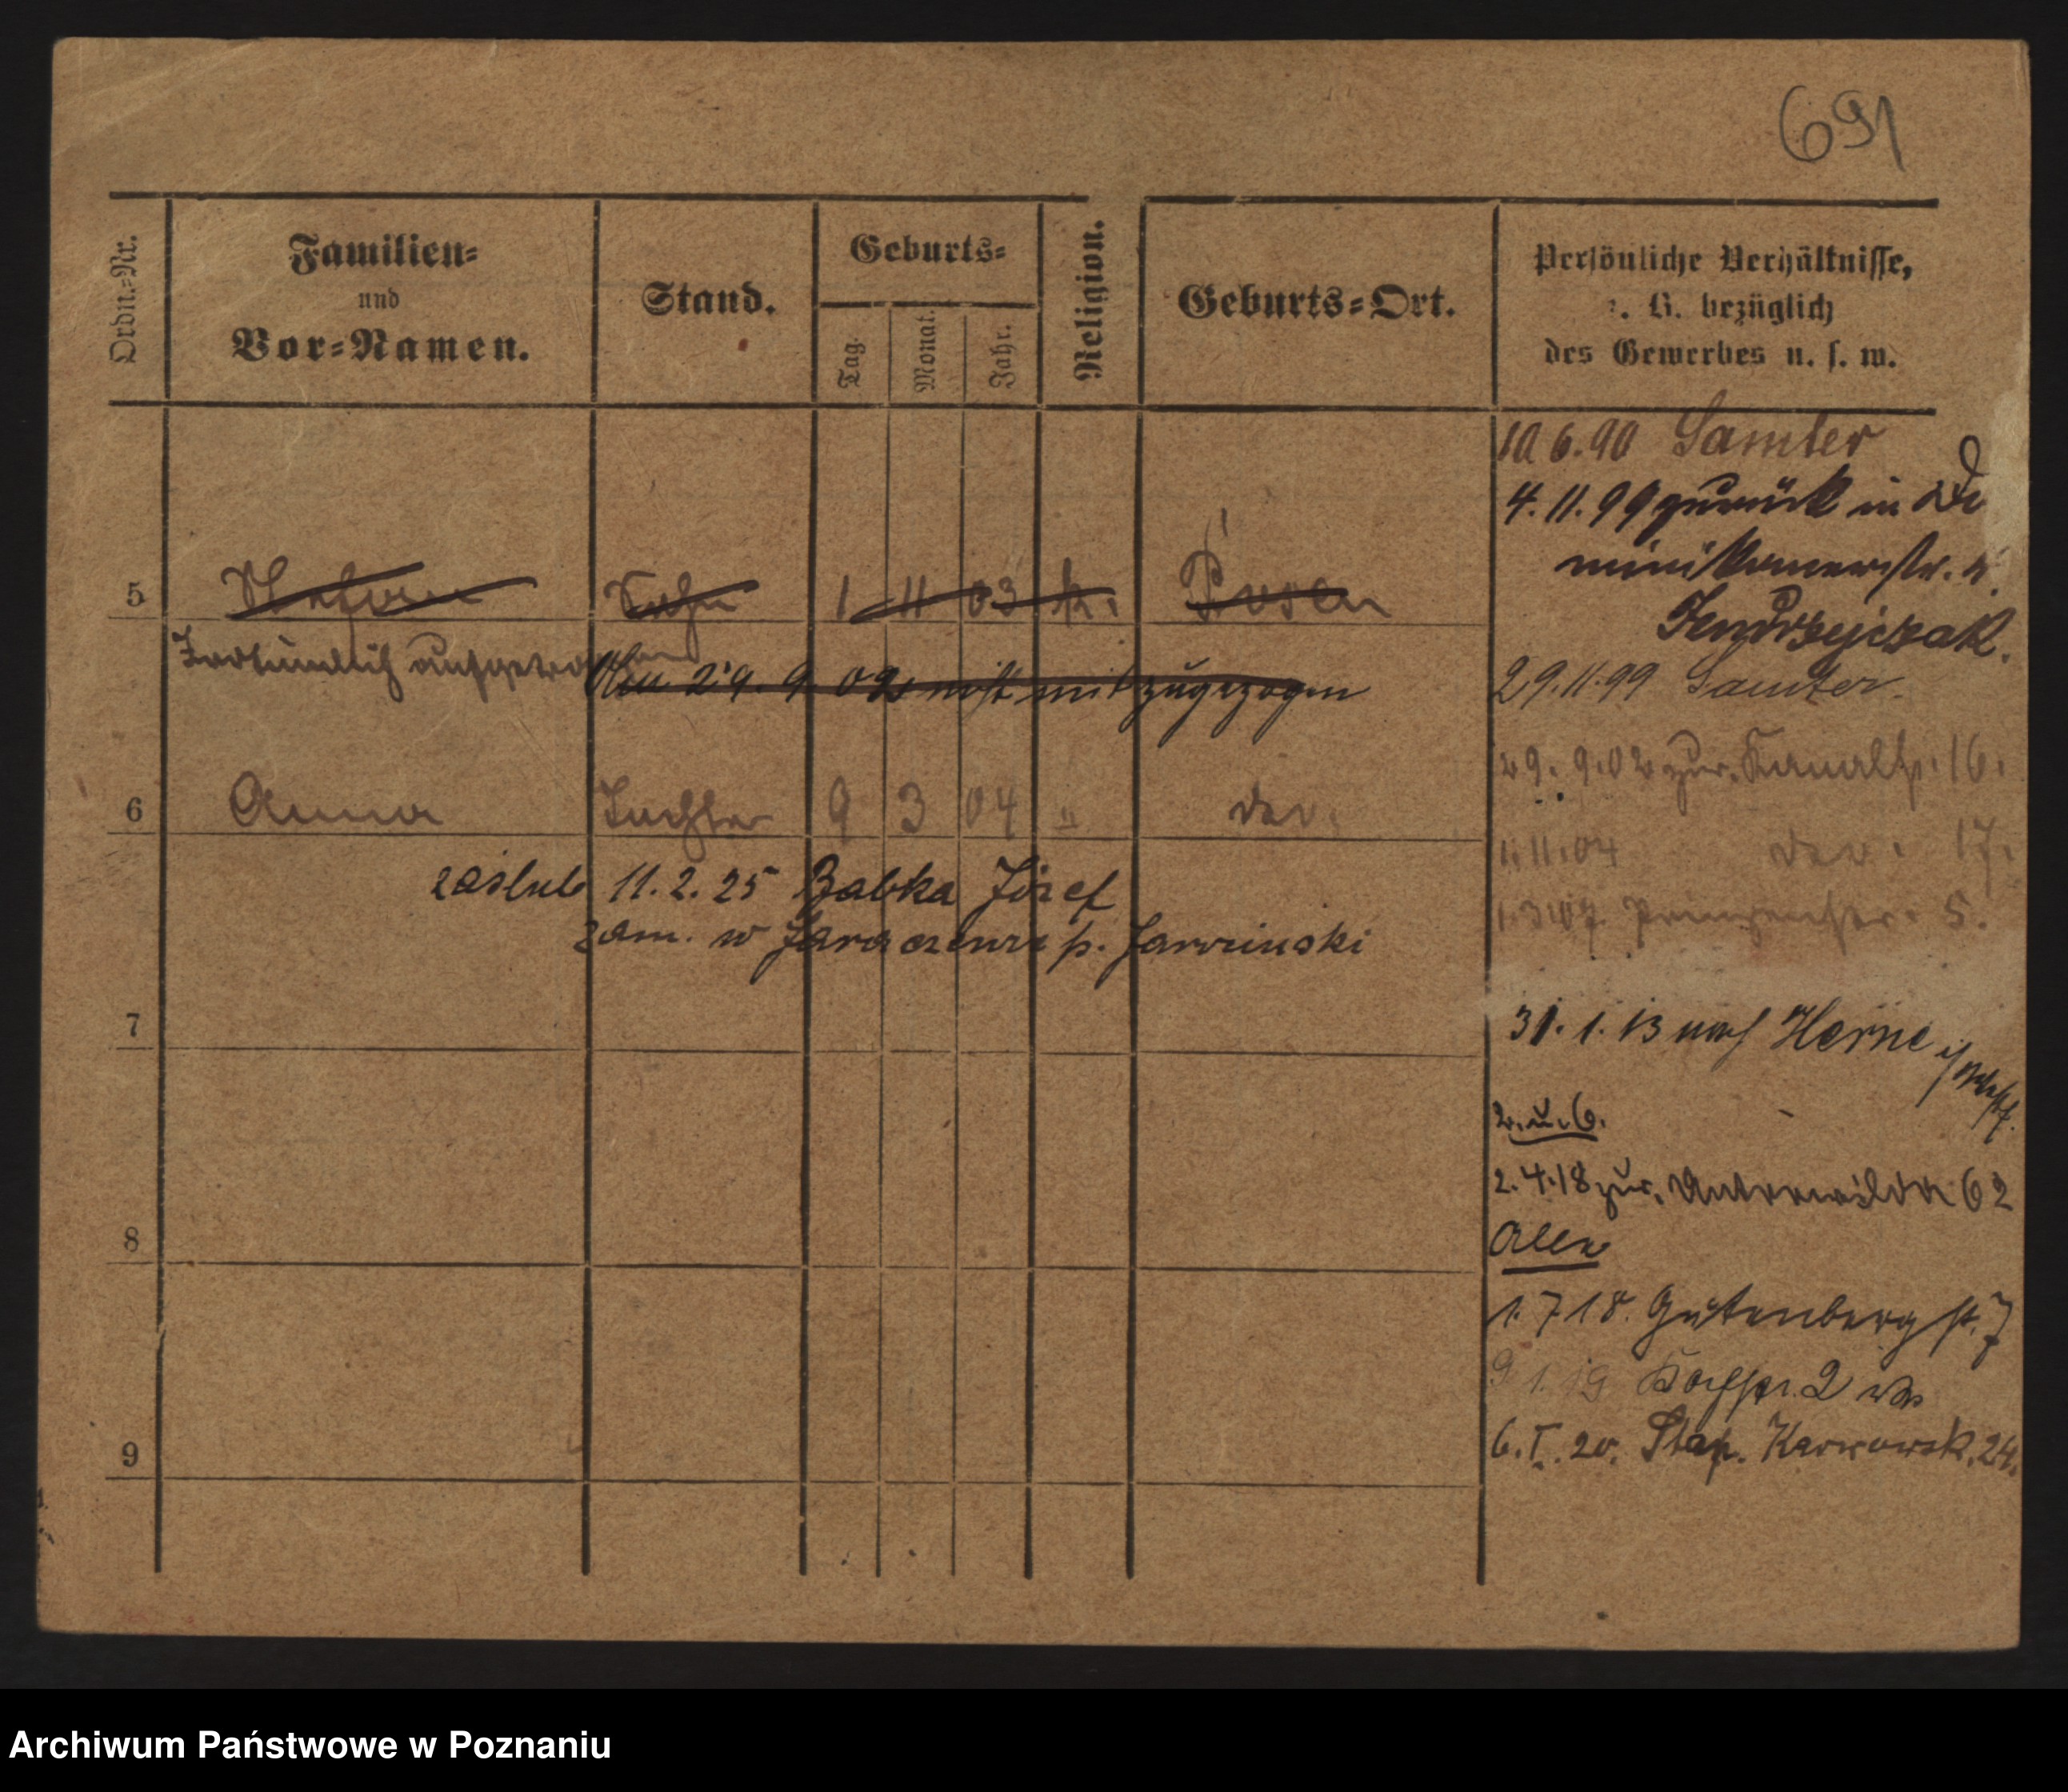 691
Ordn.-Nr.
Familien-
und
Vor-Namen.
Stand.
Geburts-
Tag.
Monat.
Jahr.
Religion.
Geburts-Ort.
Persönliche Verhältnisse,
z. B. bezüglich
des Gewerbes u. s. w.
10 6.90 Samter
4.11.99 zurück in Do
minikanerstr.
Jendrzejczak.
29.11.99 Samter.
29. 9.02 zur. Kanalstr. 16.
1.11.04 der. 17.
1.3.07 Prinzenstr. 5.
31.1.13 nach Herne i/Westf.
2. u. 6.
2.4.18 zur. Unterwilda 62
Alle
1.7.18. Gutenbergstr. 7
9 1.19 2
6.I.20. Stan. Karwowsk. 24.
5 Stefan Sohn 1 11 03 k. Posen
Irrtümlich aufgetragen
29. 9 02 nicht mit zugezogen
6 Anna Tochter 9 3 04 " der.
zaślub 11.2.25 Babka Józef
zam. w p. Jarociński
7
8
9
Archiwum Państwowe w Poznaniu